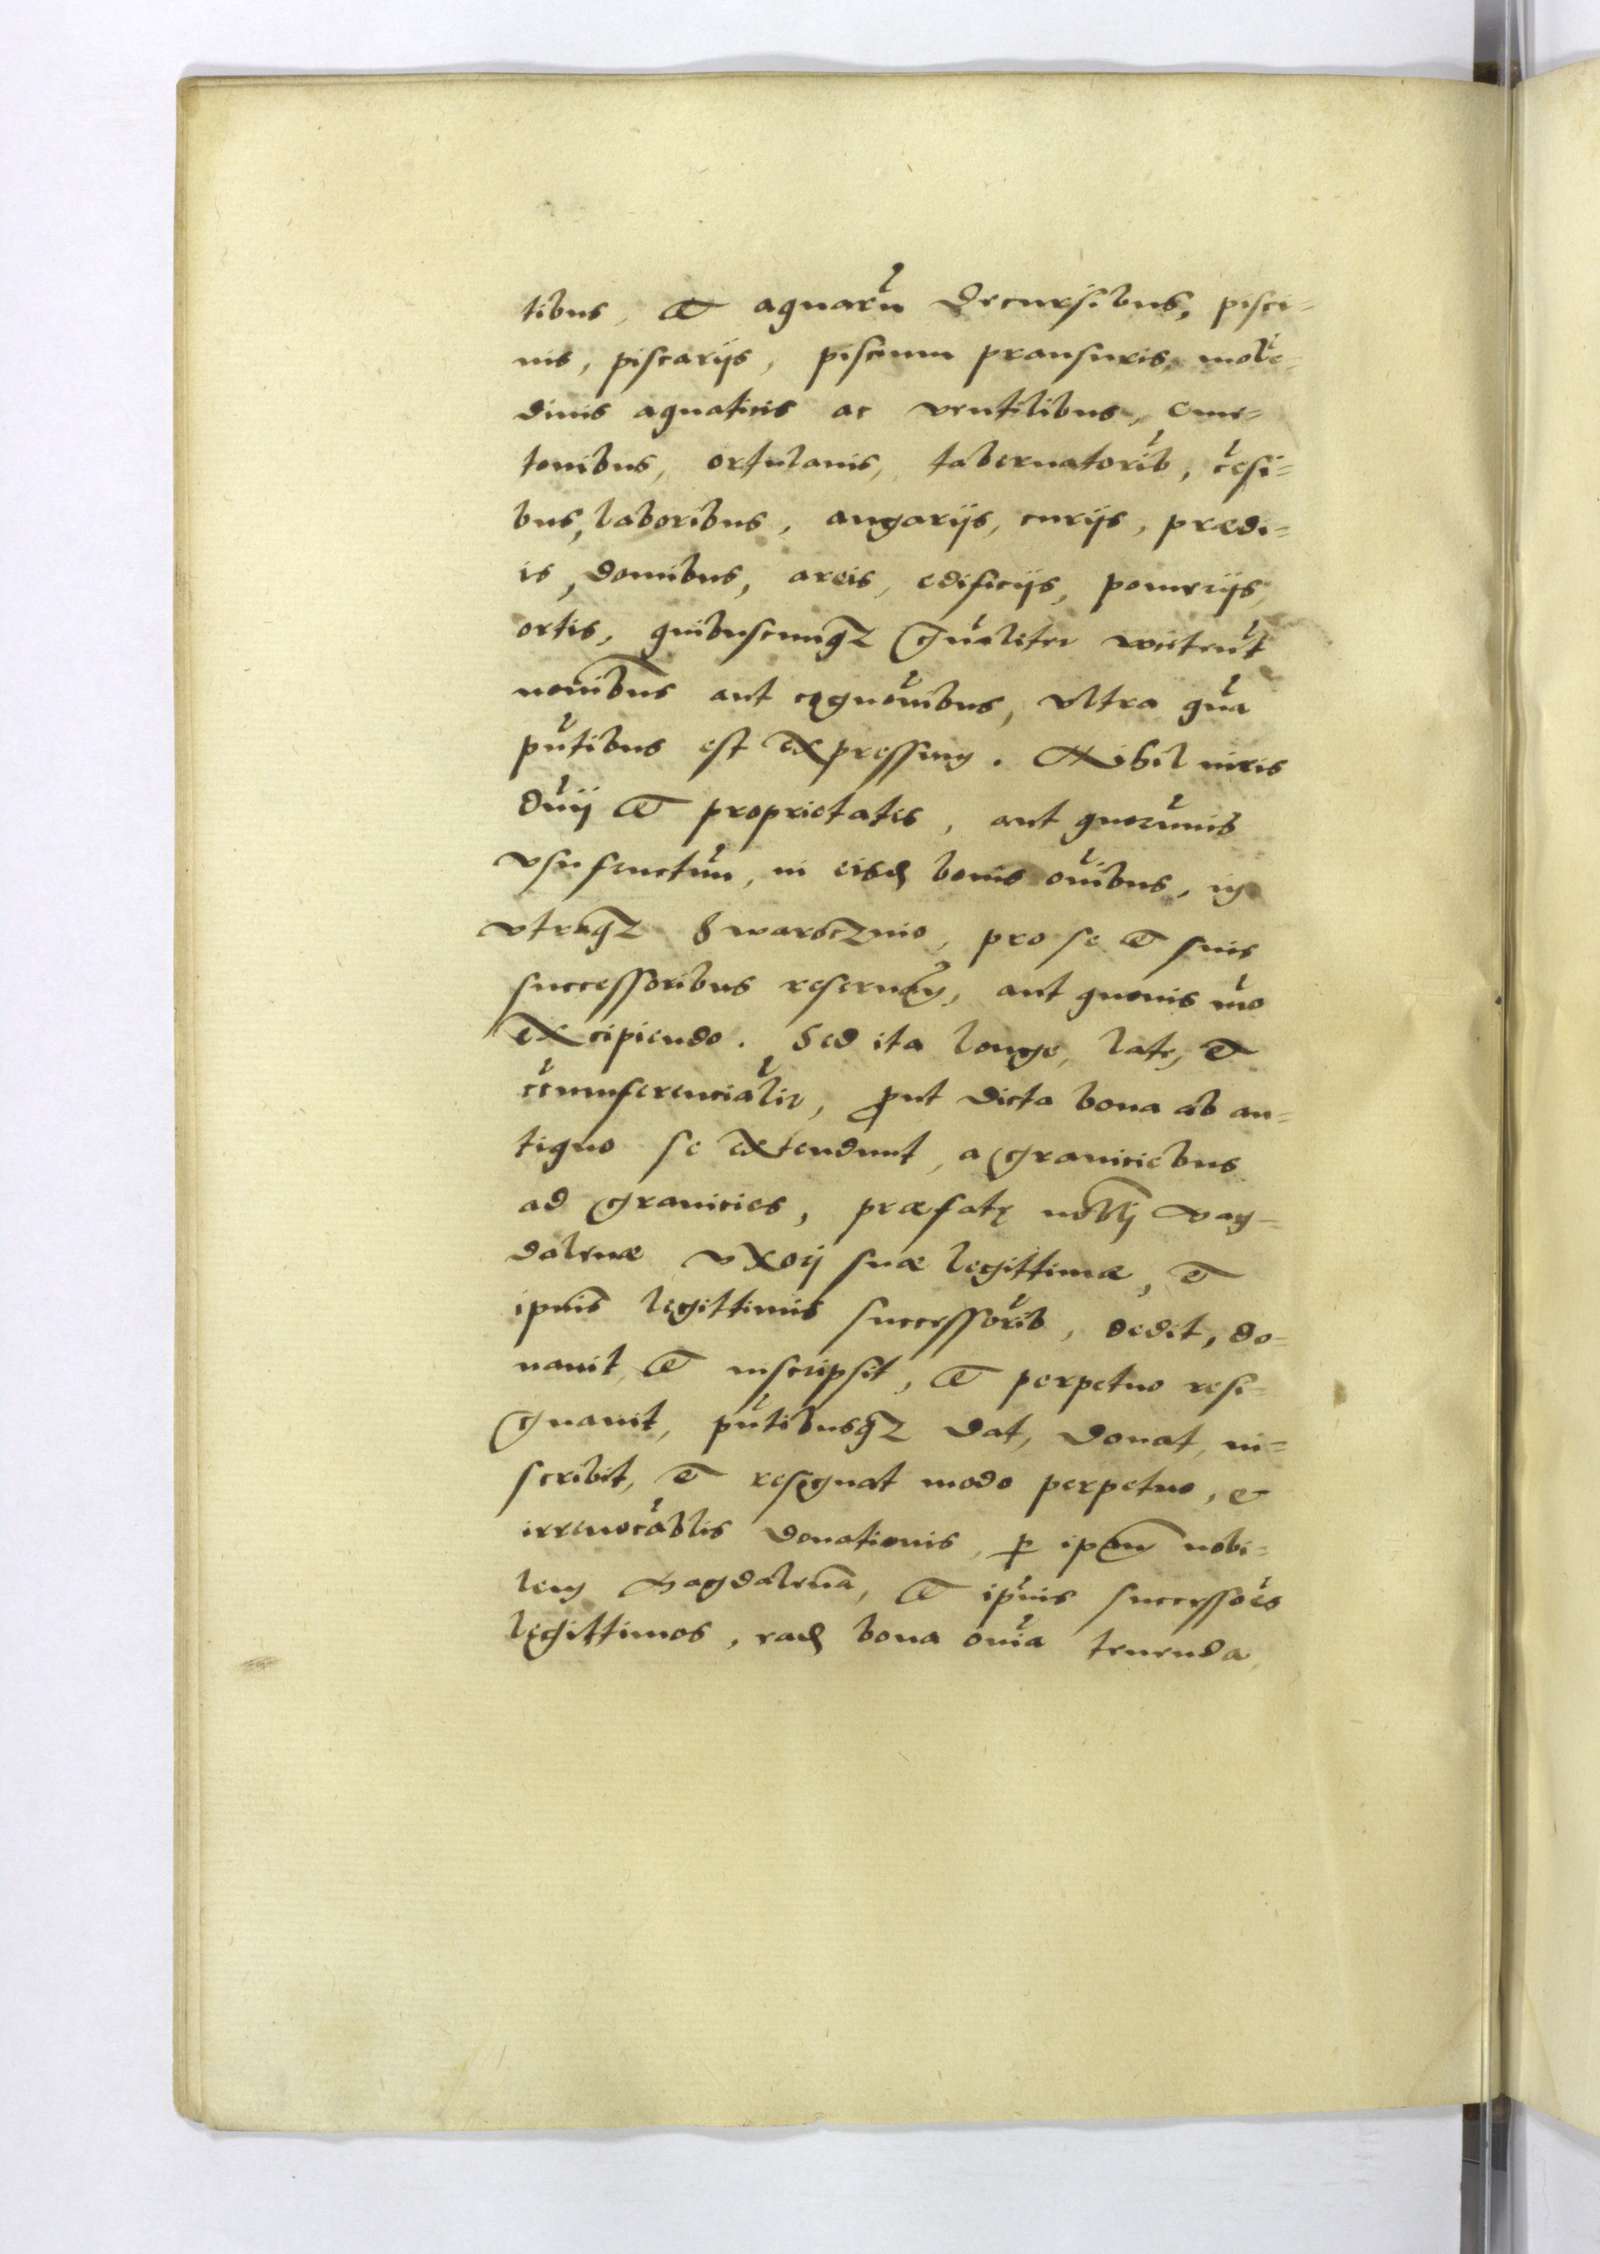 tibus, et aquarũ decursibus, pisci=
nis, piscarijs, piscium pransuris, mole=
dinis aquaticis ac ventilibus, cme=
tonibus, ortulanis, tabernatorib, cesi=
bus, laboribus, angarijs, curijs, prædi=
is, domibus, areis, edificijs, pomerijs,
ortis, quibuscunq₃ qualiter
nomĩbus aut cognoĩbus, vltra qua
pñtibus est expressum. Nihil iuris
dñij et proprietatis, aut quorumuis
vsufructuum, in eisd bonis oĩbus, in
vtraq₃ Swarocznio, pro se et suis
successoribus reseruan, aut quouis mõ
excipiendo. Sed ita longe, late, et
circumferencialit, put dicta bona ab an=
tiquo se extendunt, a graniciebus
ad granicies, præfatę nobli Mag=
dalenæ vxorj suæ legittimæ, et
ipius legittimis successorib, dedit, do=
nauit et inscripsit, et perpetuo resi=
gnauit, pñtibusq₃ dat, donat, in=
scribit, et resignat modo perpetuo, et
irreuocablis donationis, p ipam nobi=
lem Magdalenã, et ipius successores
legittimos, ead bona oĩa tenenda